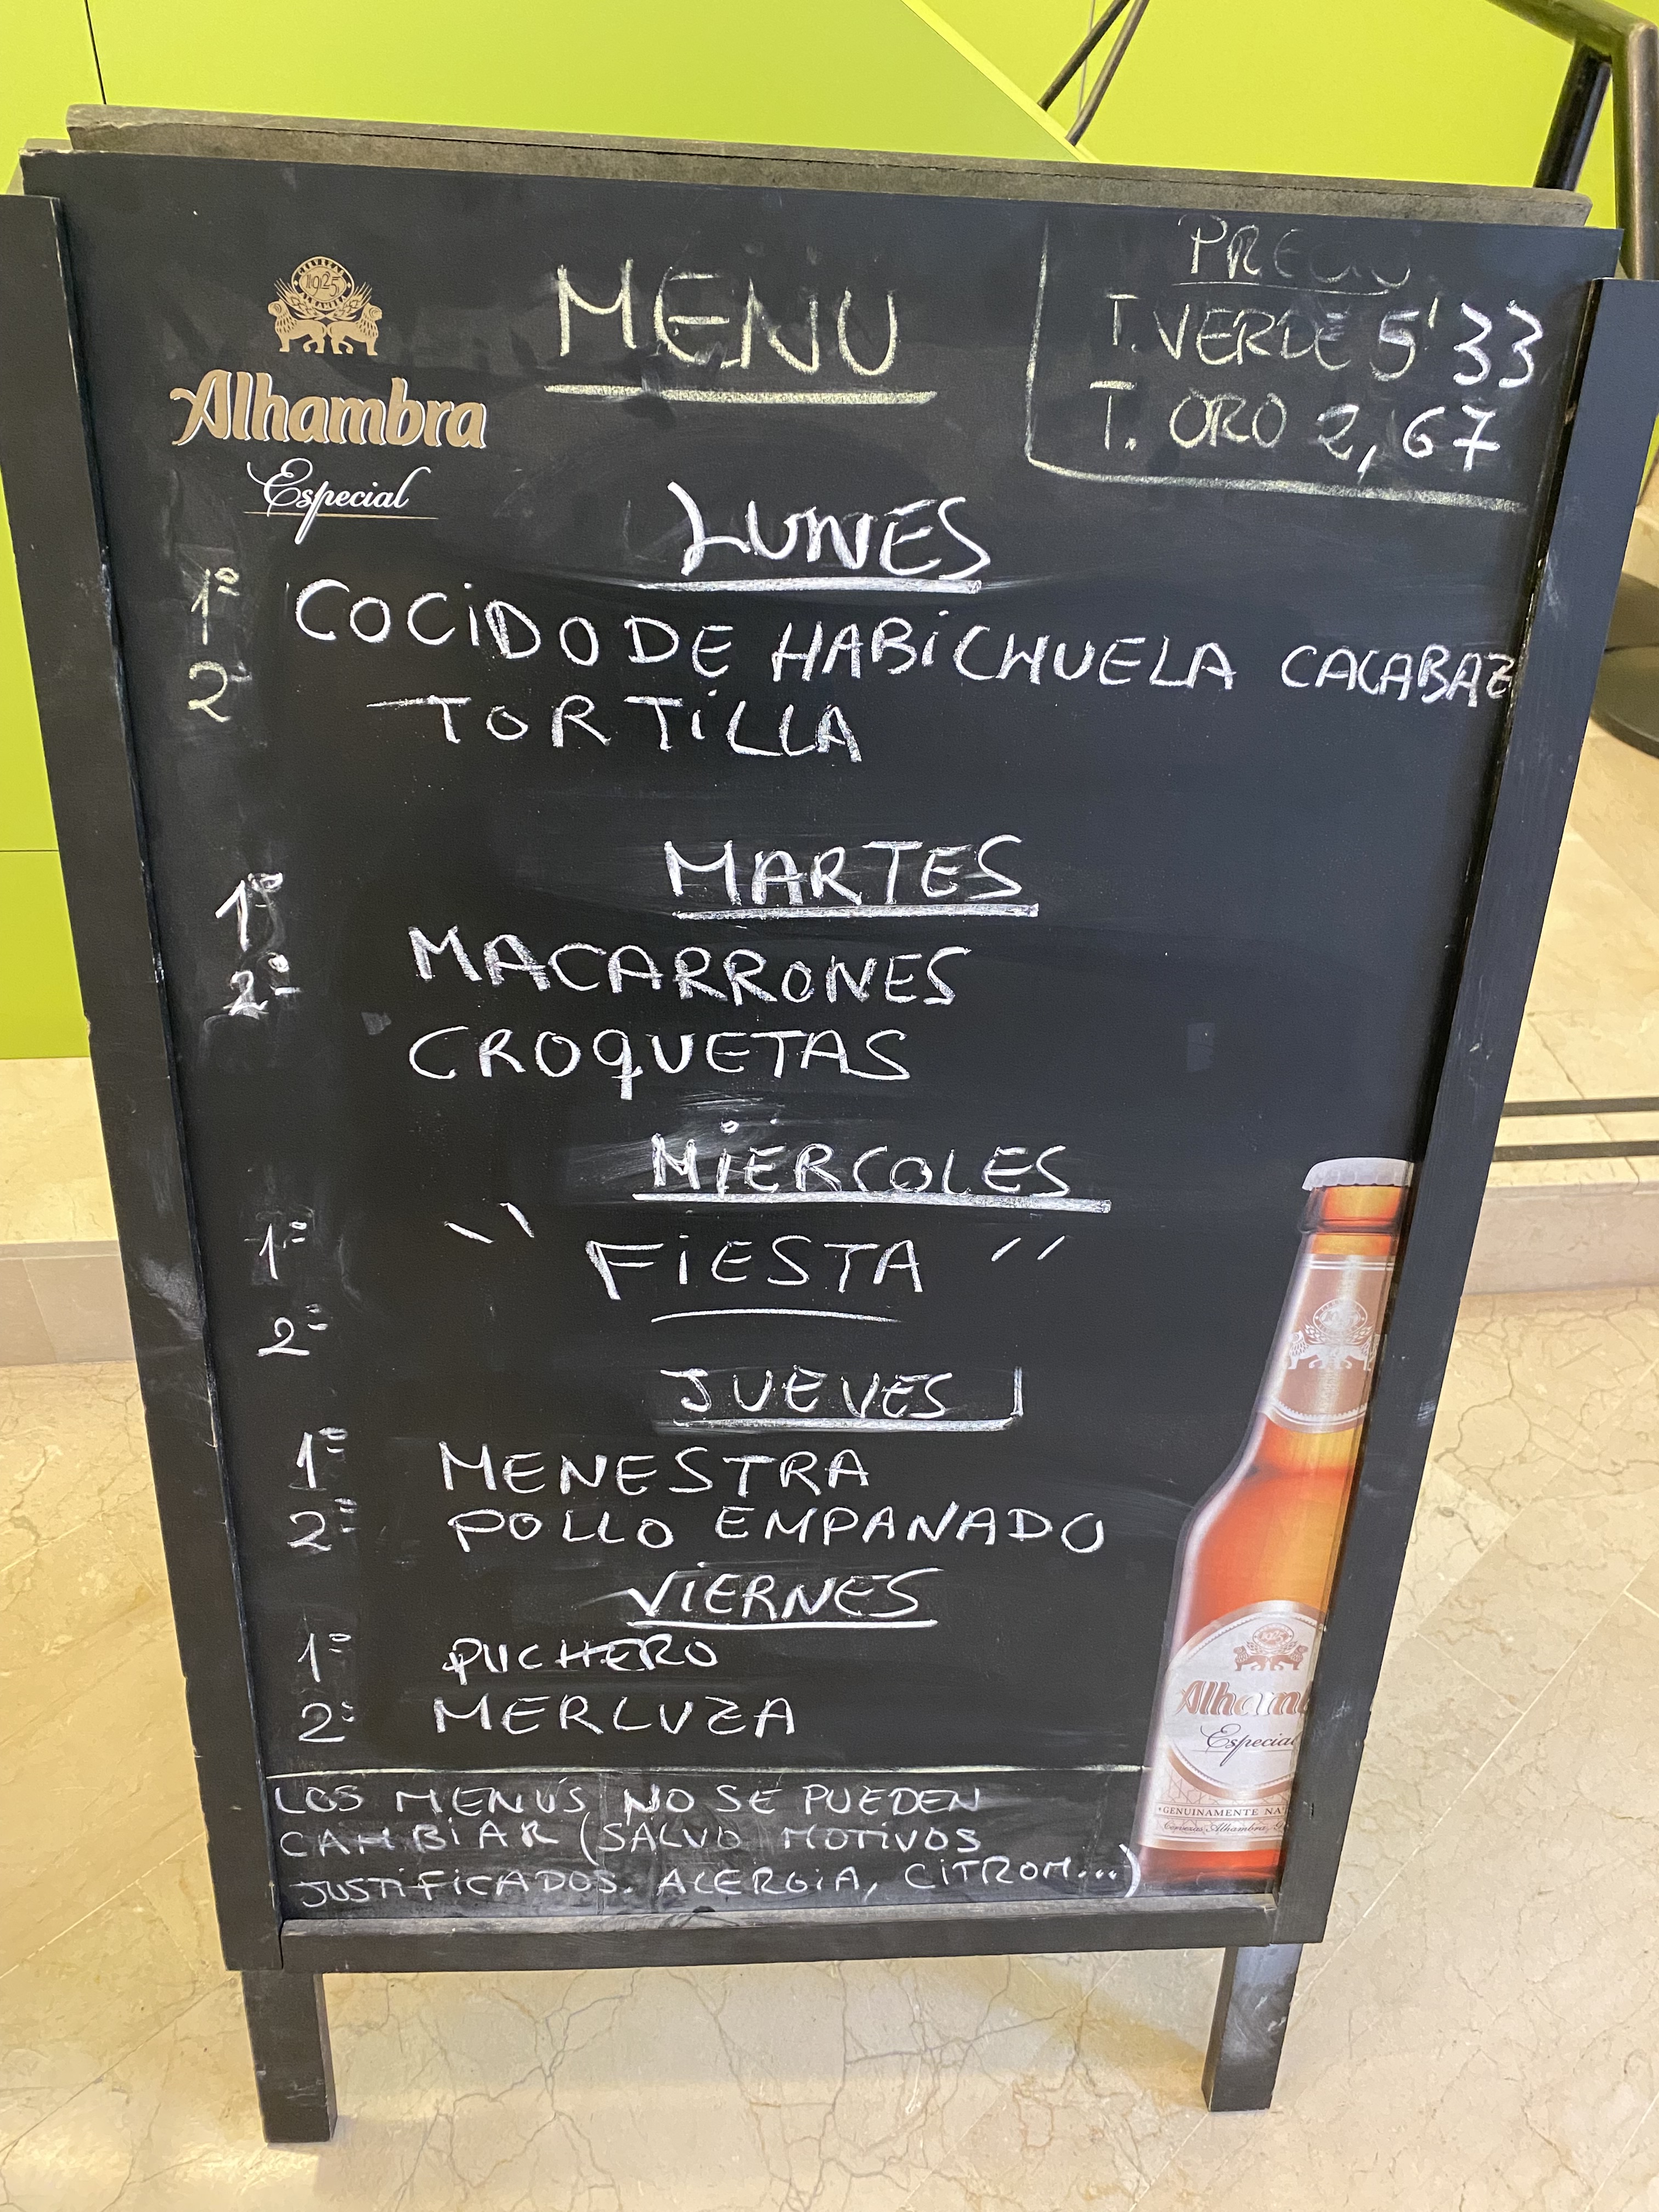 CERVEZAS
1925
ALHAMBRA
Alhambra
Especial
MENU
PRECIO
T. VERDE 5'33
T. ORO 2,67
LUNES
1º COCIDO DE HABICHUELA CALABAZ
2º TORTILLA
MARTES
1º MACARRONES
2º CROQUETAS
MIERCOLES
1º "FIESTA"
2º
JUEVES
1º MENESTRA
2º POLLO EMPANADO
VIERNES
1º PUCHERO
2º MERLUZA
LOS MENÚS NO SE PUEDEN
CAMBIAR (SALVO MOTIVOS
JUSTIFICADOS. ALERGIA, CITROM...)
1925
Alhamb
Especial
GENUINAMENTE NAT
Cervezas Alhambra, G